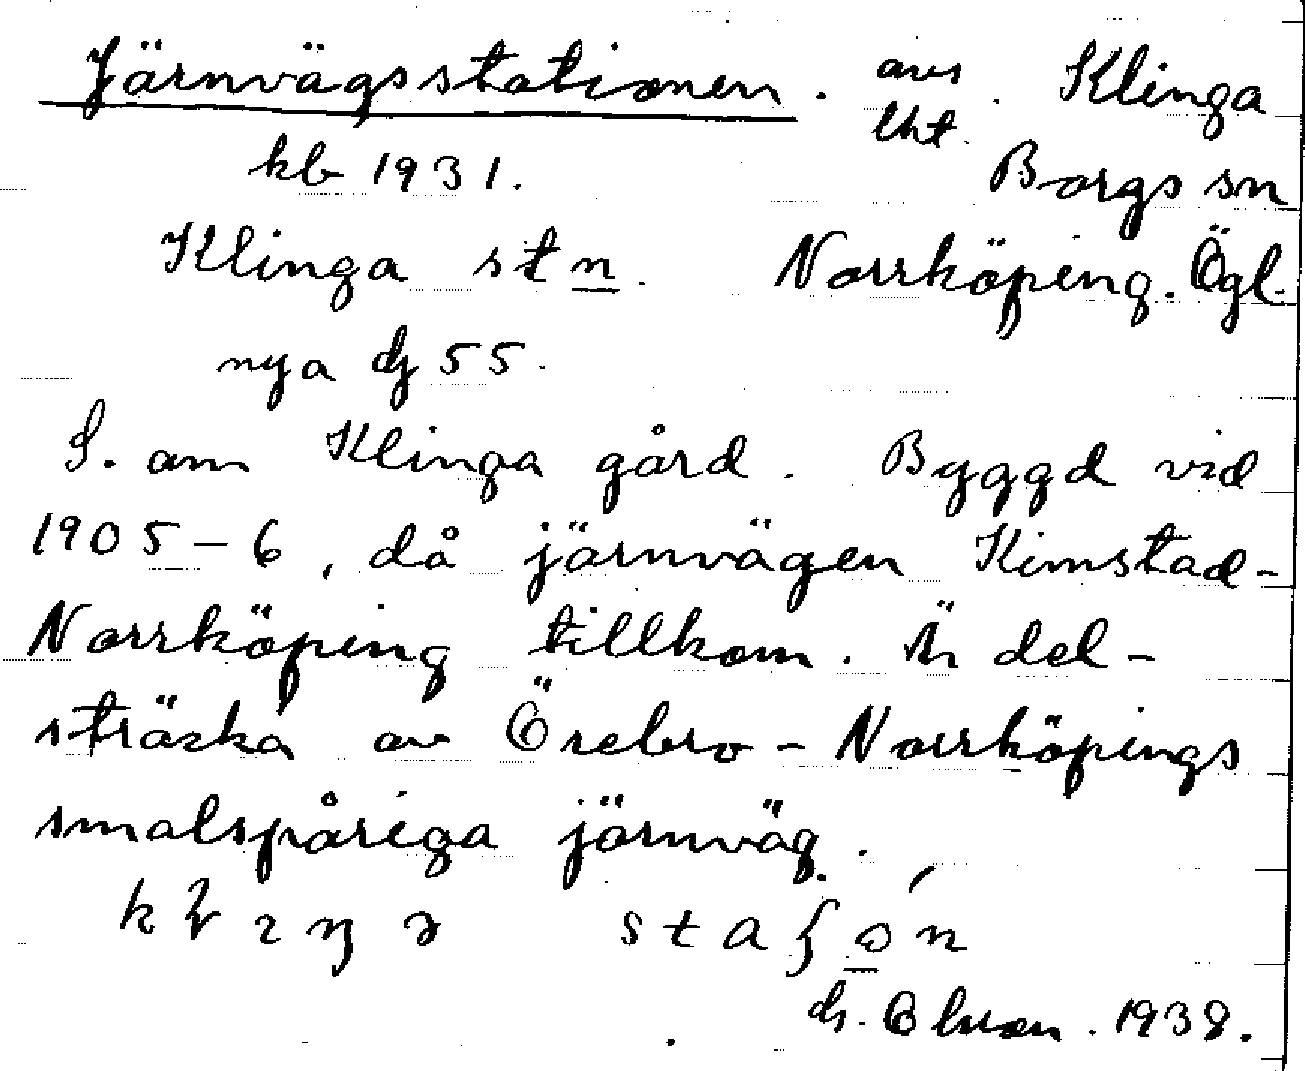 Järnvägsstationen. avs. lht. Klinga
kb 1931. Borgs sn
Klinga stn. Norrköping. Ögl.
nya dj 55.
S. om Klinga gård. Byggd vid
1905-6, då järnvägen Kimstad-
Norrköping tillkom. Är del-
sträcka av Örebro - Norrköpings
smalspåriga järnväg.